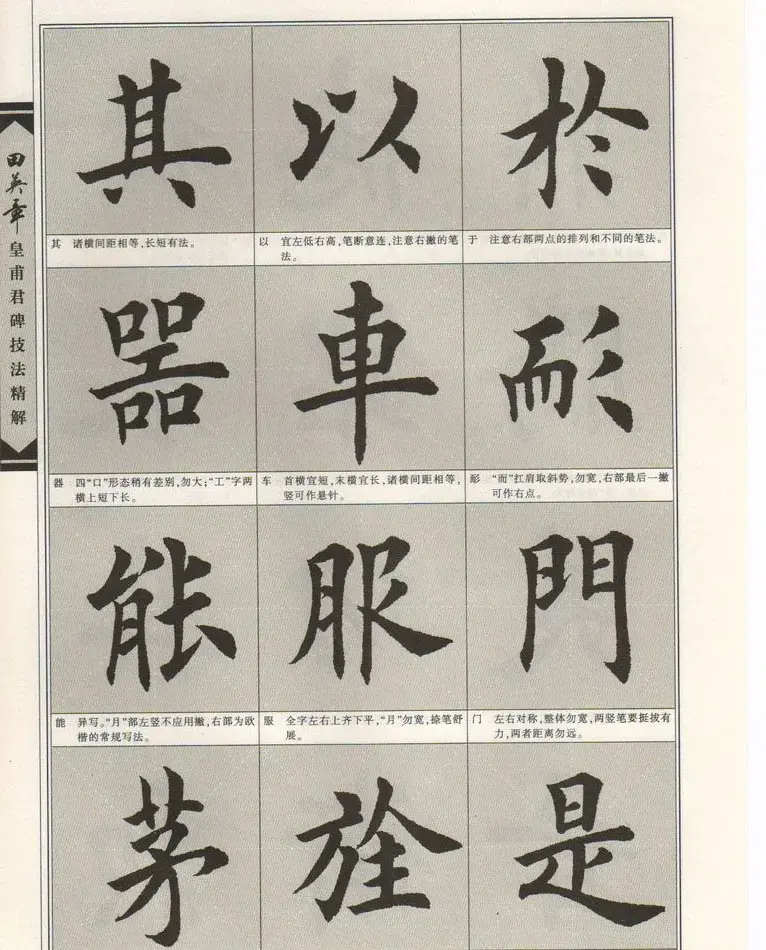 田英章
皇甫君碑技法精解
其 以 於
其 诸横间距相等,长短有法。
以 宜左低右高,笔断意连,注意右撇的笔
法。
于 注意右部两点的排列和不同的笔法。
器 車 形
器 四“口”形态稍有差别,勿大;“工”字两
横上短下长。
车 首横宜短,末横宜长,诸横间距相等,
竖可作悬针。
耏 “而”扛肩取斜势,勿宽,右部最后一撇
可作右点。
能 服 門
能 异写。“月”部左竖不应用撇,右部为欧
楷的常规写法。
服 全字左右上齐下平,“月”勿宽,捺笔舒
展。
门 左右对称,整体勿宽,两竖笔要挺拔有
力,两者距离勿远。
茅 旌 是